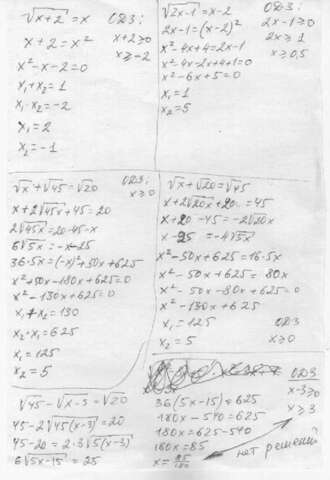 √x+2 = x
ОДЗ:
x+2 = x²
x+2≥0
x≥-2
x²-x-2=0
x₁+x₂=1
x₁·x₂=-2
x₁=2
x₂=-1
√2x-1 = x-2
ОДЗ:
2x-1=(x-2)²
2x-1≥0
2x≥1
x≥0,5
x²-4x+4=2x-1
x²-4x-2x+4+1=0
x²-6x+5=0
x₁=1
x₂=5
√x + √45 = √20
ОДЗ:
x≥0
x+2√45x+45=20
2√45x=20-45-x
6√5x=-x-25
36·5x=(-x)²+50x+625
x²+50x-180x+625=0
x²-130x+625=0
x₁+x₂=130
x₂·x₁=625
x₁=125
x₂=5
√x+√20=√45
x+2√20x+20=45
x+20-45=-2√20x
x-25=-4√5x
x²-50x+625=16·5x
x²-50x+625=80x
x²-50x-80x+625=0
x²-130x+625
x₁=125
ОДЗ
x₂=5
x≥0
√45-√x-3=√20
45-2√45(x-3)=20
45-20=2·3√5(x-3)
6√5x-15=25
ОДЗ
x-3≥0
x≥3
36(5x-15)=625
180x-540=625
180x=625-540
180x=85
x=85/180
нет решений